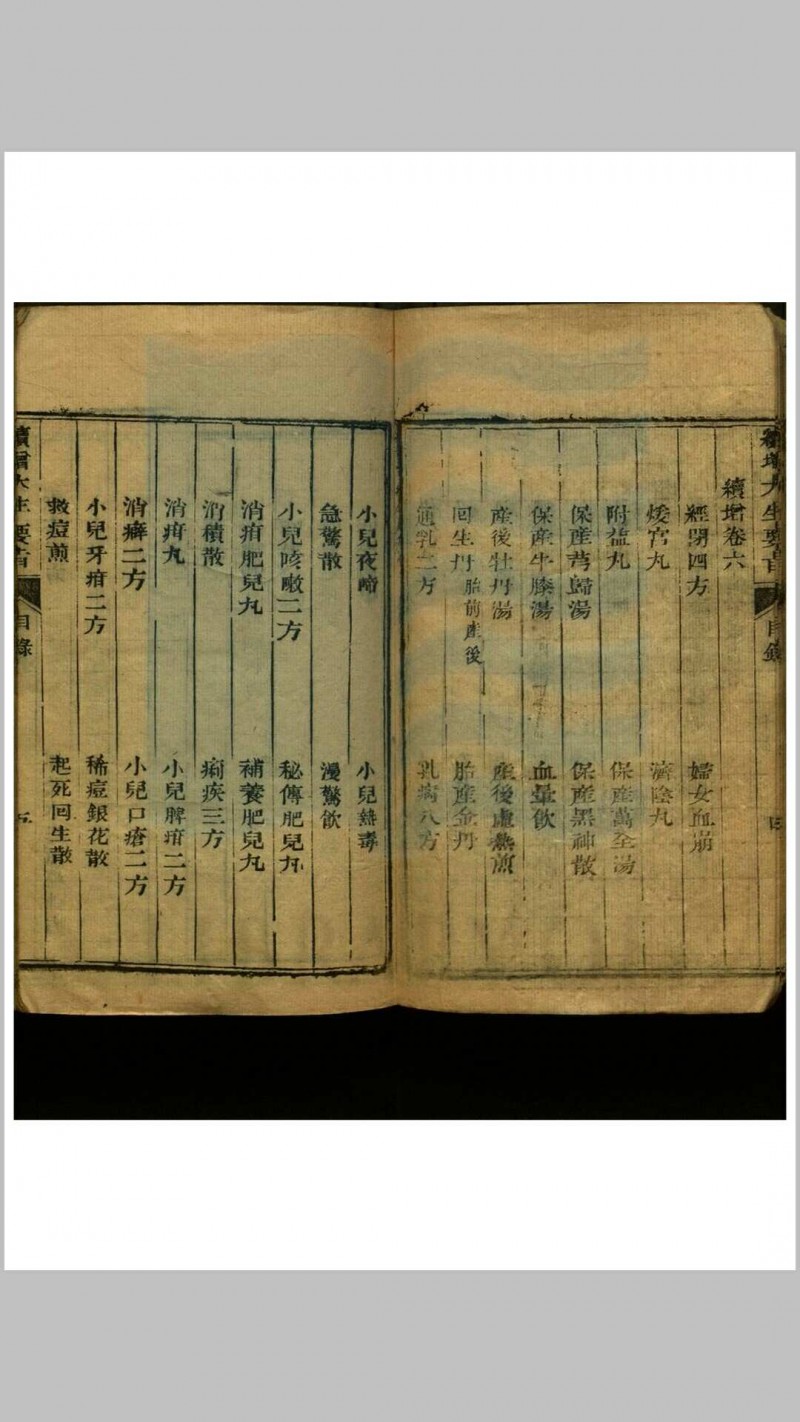 續增大生要旨
目錄
續增卷六
經閉四方
婦女血崩
煖宮丸
濟陰丸
附益丸
保產萬全湯
保產芎歸湯
保產黑神散
保產牛膝湯
血暈飲
產後牡丹湯
產後虛熱煎
回生丹 胎前產後
胎產金丹
通乳二方
乳病八方
小兒夜啼
小兒熱毒
急驚散
漫驚飲
小兒咳嗽二方
秘傳肥兒丸
消疳肥兒丸
補養肥兒丸
消積散
痢疾三方
消疳丸
小兒脾疳二方
消癖二方
小兒口瘡二方
小兒牙疳二方
稀痘銀花散
救痘煎
起死回生散
續增大生要旨
目錄
五